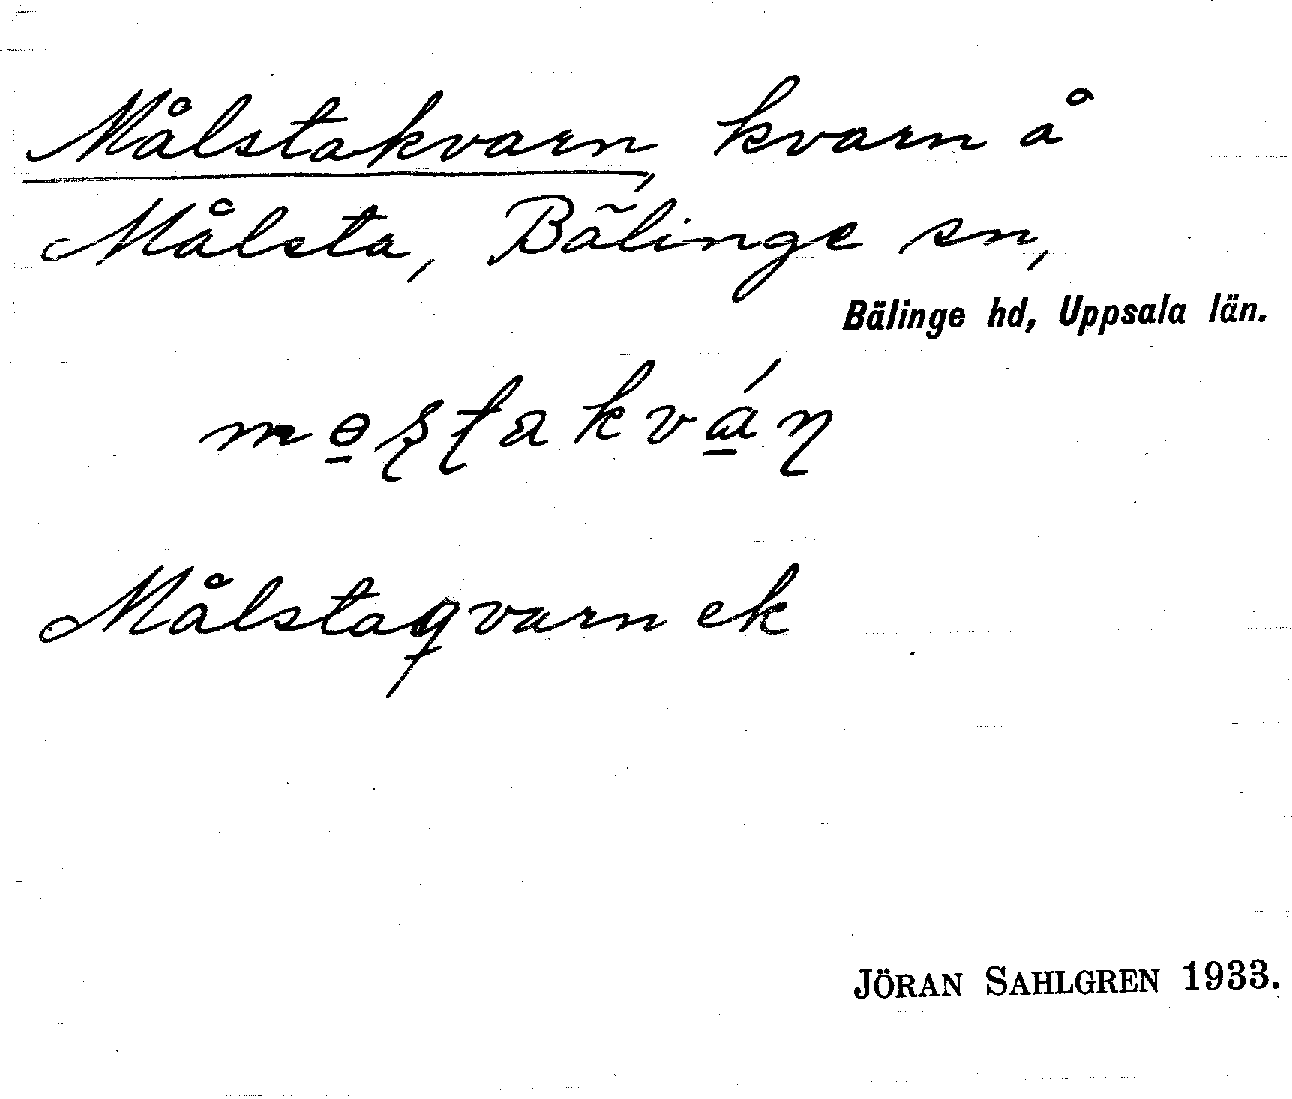 Målstakvarn, kvarn å
Målsta, Bälinge sn,
Bälinge hd, Uppsala län.
mɵ̱ʂʈakvá̱ɳ
Målstaqvarn ek
JÖRAN SAHLGREN 1933.